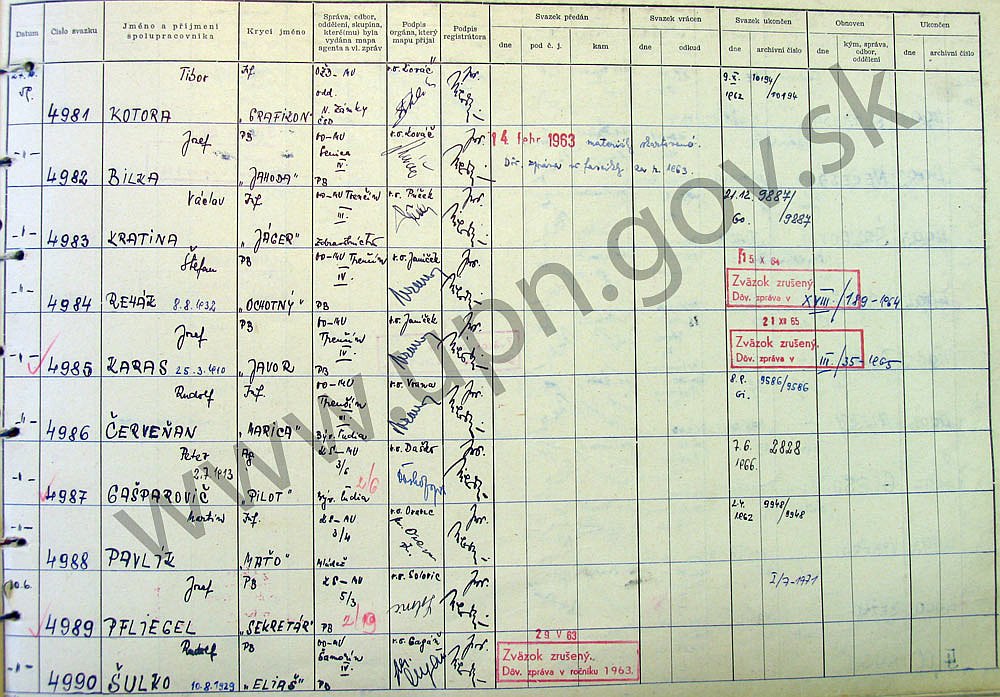 Datum
Číslo svazku
Jméno a příjmení
spolupracovníka
Krycí jméno
Správa, odbor,
oddělení, skupina,
které(mu) byla
vydána mapa
agenta a vl. zpráv
Podpis
orgána, který
mapu přijal
Podpis
registrátora
Svazek předán
dne
pod č. j.
kam
Svazek vrácen
dne
odkud
Svazek ukončen
dne
archivní číslo
Obnoven
dne
kým, správa,
odbor,
oddělení
Ukončen
dne
archivní číslo
4981
Tibor
KOTORA
Inf.
„GRAFIKON"
OŽD-AV
odd.
N. Zámky
ČSD
v.o. Kováč
1962
10194/
10194
4982
Jozef
BILKA
PB
„JAHODA"
OO-MV
Senica
IV.
PB
v.o. Kováč
14 febr 1963
4983
Václav
KRATINA
Inf.
„JÄGER"
OO-MV Trenčín
III.
v.o. Púček
21.12.
60.
9887/
9887
4984
Štefan
REHÁK 8.8.1932
PB
„OCHOTNÝ"
OO-MV Trenčín
IV.
PB
v.o. Janíček
15 X 64
Zväzok zrušený
Dôv. zpráva v XVIII/189-1964
4985
Jozef
KARAS 25.3.1910
PB
„JAVOR"
OO-MV
Trenčín
IV.
PB
v.o. Janíček
21 XII 65
Zväzok zrušený.
Dôv. zpráva v III/35-1965
4986
Rudolf
ČERVEŇAN
Inf.
„MARICA"
OO-MV
Trenčín
III
Býv. ľudia
v.o. Vrana
8.8.
61.
9586/9586
4987
Peter
2.7.1913
GAŠPAROVIČ
Ag
„PILOT"
KS-MV
3/6
2/6
Býv. ľudia
v.o. Daško
7.6.
1966.
2828
4988
Martin
PAVLÍK
Inf.
„MAŤO"
KS-MV
3/4
Mládež
v.o. Orenc
2.4.
1962
9948/
9948
10.6.
4989
Jozef
PFLIEGEL
PB
„SEKRETÁR"
KS-MV
5/3
2/19
PB
v.o. Solovic
I/7-1971
4990
Rudolf
ŠULKO 10.8.1929
PB
„ELIÁŠ"
OO-MV
Šamorín
IV
PB
v.o. Gagáň
29 V 63
Zväzok zrušený.
Dôv. zpráva v ročníku 1963.
www.upn.gov.sk